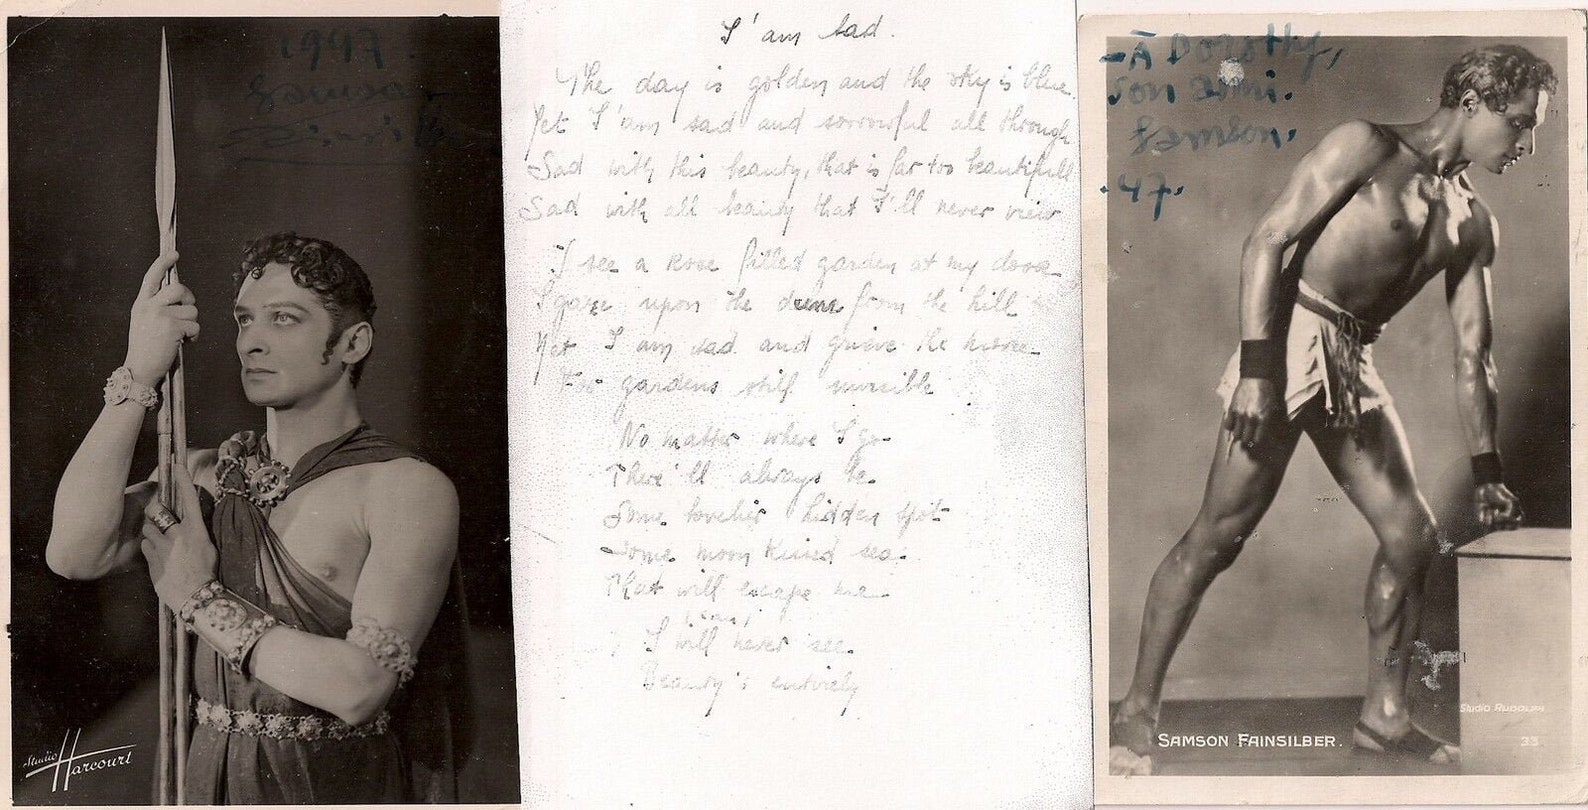 1947.
Samson
Studio
Harcourt
I'am sad.
The day is golden and the sky is blue.
Yet I'am sad and sorrowful all through
Sad with this beauty, that is far too beautifull
Sad with all beauty that I'll never view
I see a Rose filled garden at my door
I gaze upon the from the hill
Yet I am sad and grieve the more
For gardens still invisible
No matter where I go
There'll always be
Some lovelier hidden spot
Some moon sea.
That will escape me
I will never see.
Beauty's entirely
-À Dorothy,
Ton ami.
Samson.
.47.
Studio Rudolph
SAMSON FAINSILBER.
33